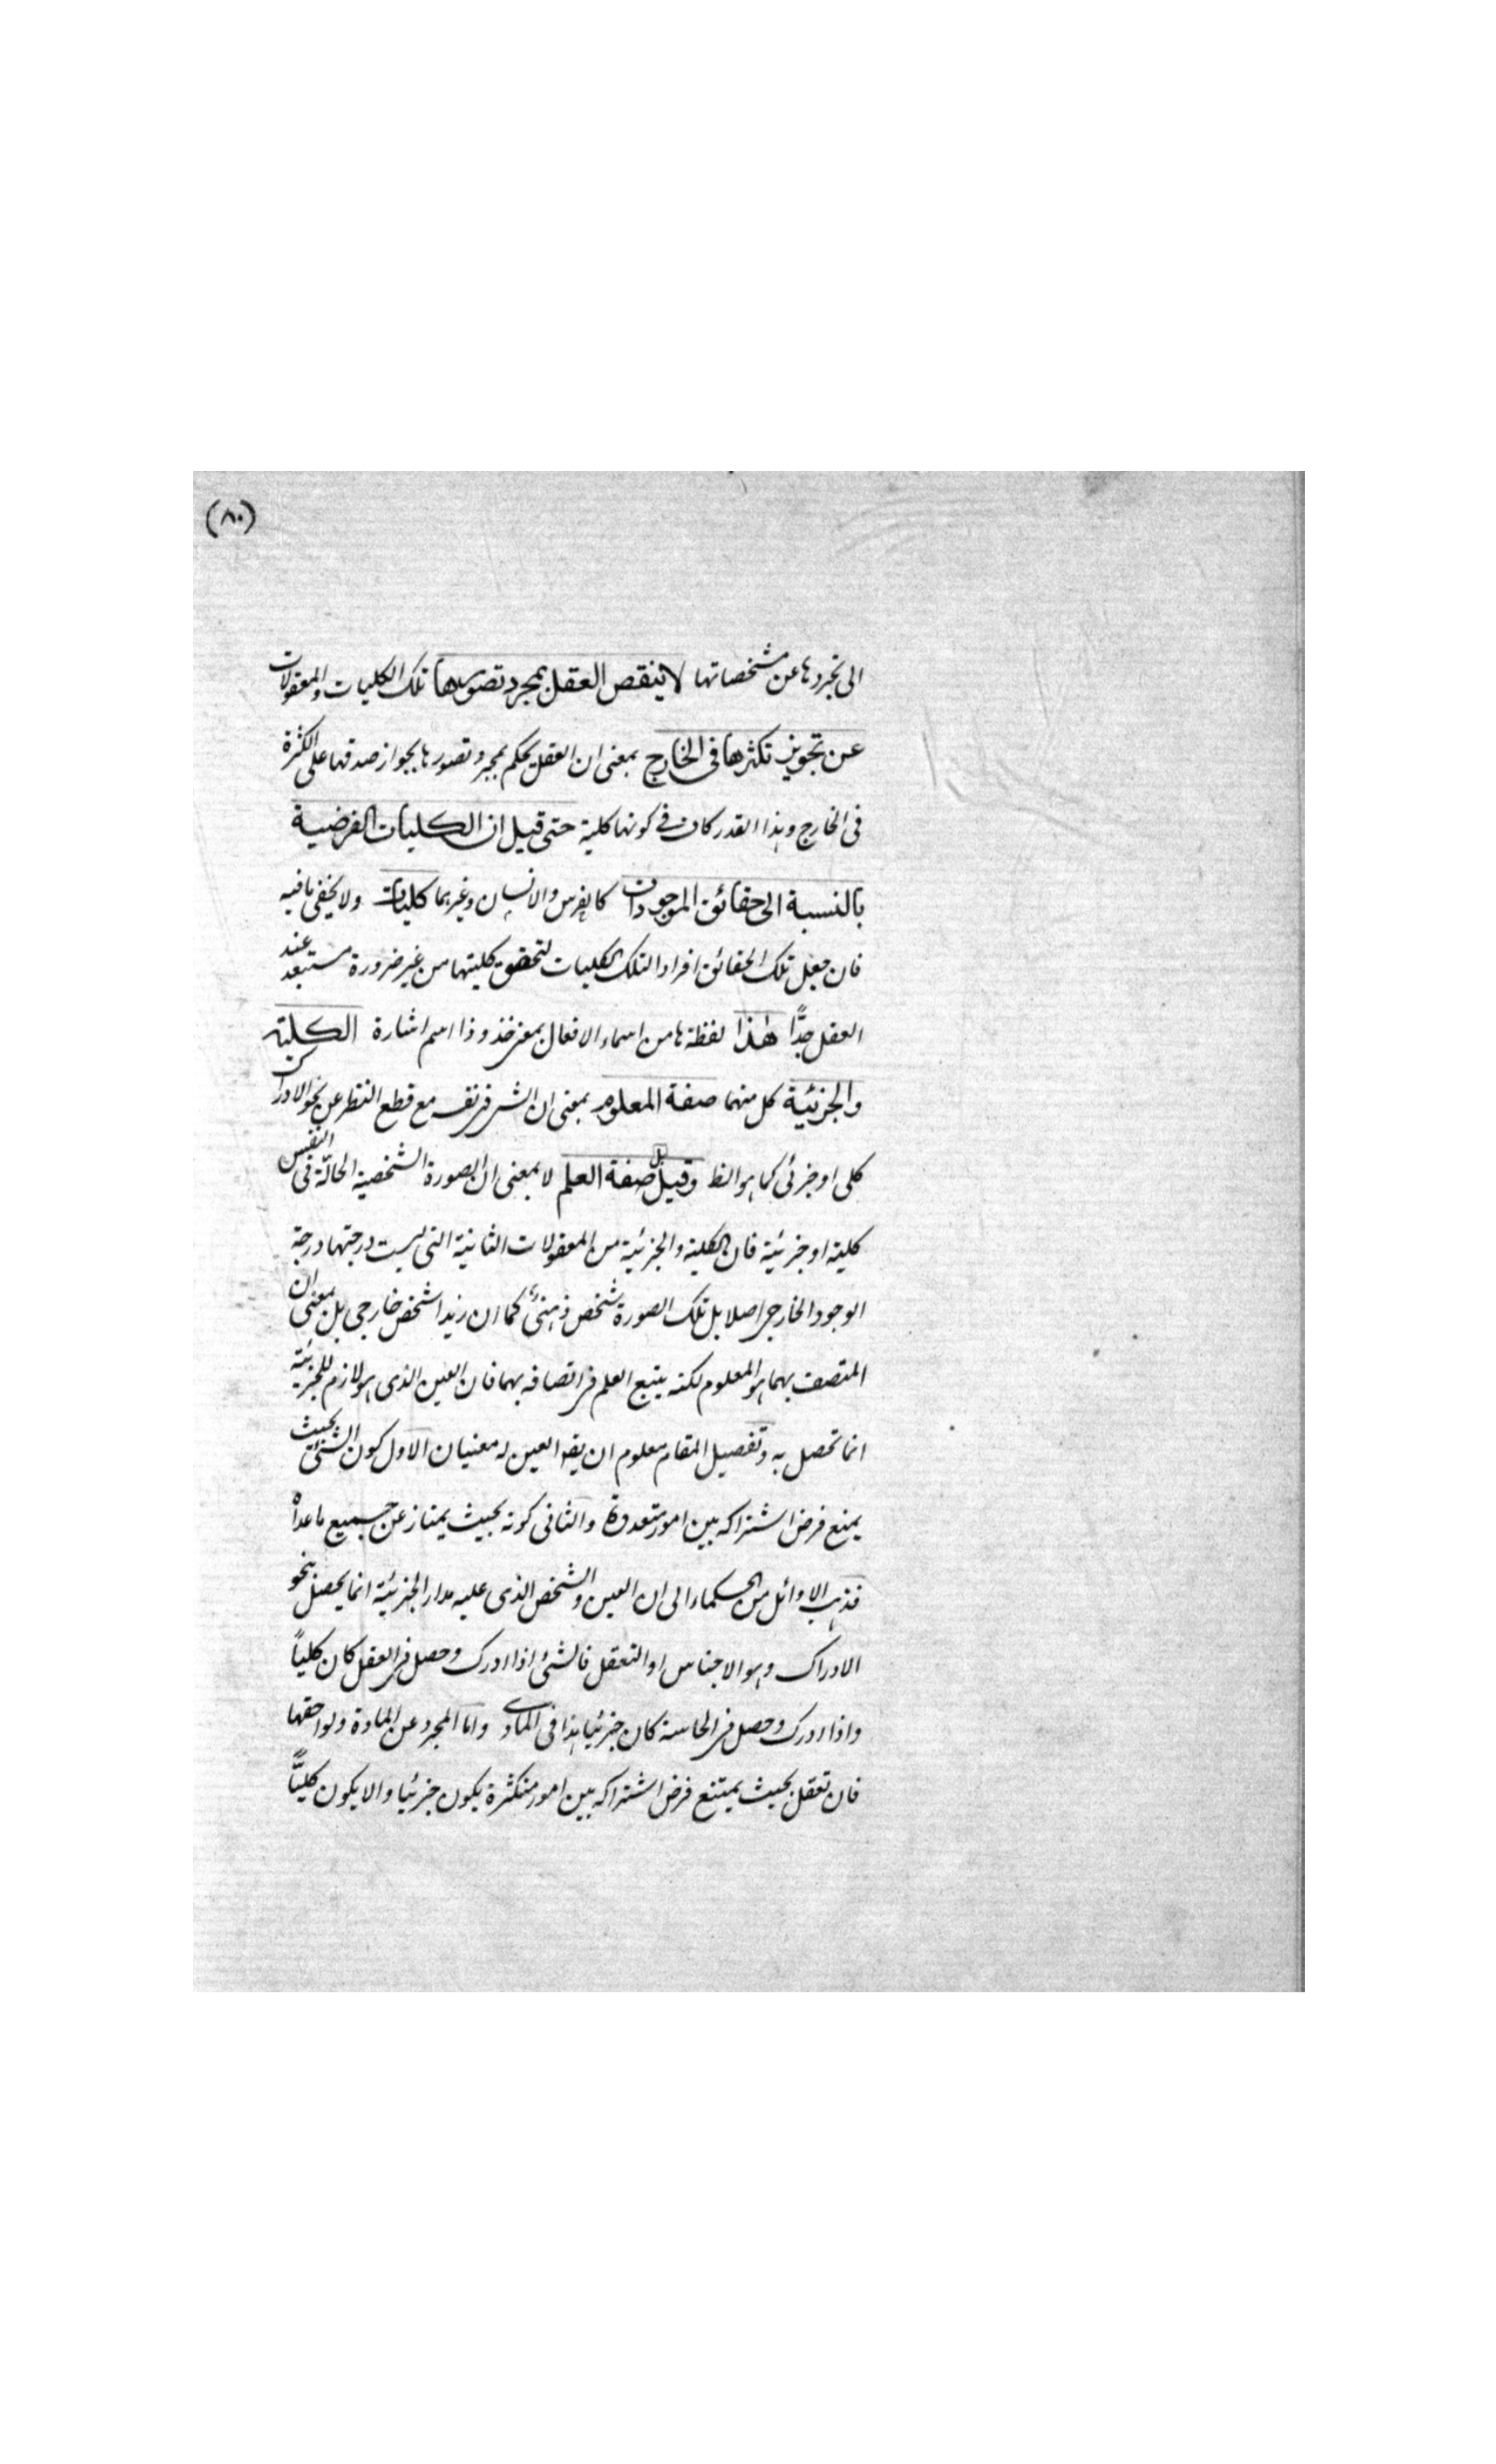 (٨٠)
الى تجردها عن مشخصاتها لا ينقص العقل بمجرد تصورها تلك الكليات والمعقولات
عن تجويز تكثرها فى الخارج بمعنى ان العقل يحكم بمجرد تصورها بجواز صدقها على الكثرة
فى الخارج وهذا القدر كاف فى كونها كلية حتى قيل ان الكليات الفرضية
بالنسبة الى حقائق الموجودات كالفرس والانسان وغيرهما كليات ولا يخفى ما فيه
فان جعل تلك الحقائق افراد التلك الكليات لتحقق كليتها من غير ضرورة مستبعد عند
العقل جدًّا هٰذا لفظة ها من اسماء الافعال بمعنى خذ وذا اسم اشارة الكلية
والجزئية كل منهما صفة المعلوم بمعنى ان الشئ فى نفسه مع قطع النظر عن نحو الادراك
كلى او جزئى كما هو الظ وقيل بل صفة العلم لا بمعنى ان الصورة الشخصية الحالّة فى النفس
كلية او جزئية فان الكلية والجزئية من المعقولات الثانية التى ليست درجتها درجة
الوجود الخارجى اصلا بل تلك الصورة شخص ذهنىٌّ كما ان زيدا شخص خارجى بل بمعنى ان
المتصف بهما هو المعلوم لكنه يتبع العلم فى اتصافه بهما فان التعين الذى هو لازم للجزئية
انما تحصل به وتفصيل المقام معلوم ان يقه التعين له معنيان الاول كون الشئ بحيث
يمنع فرض اشتراكه بين امور متعددة والثانى كونه بحيث يمتاز عن جميع ما عداه
فذهب الاوائل من الحكماء الى ان التعين والتشخص الذى عليه مدار الجزئية انما يحصل بنحو
الادراك وهو الاحساس او التعقل فالشئ اذا ادرك وحصل فى العقل كان كلياً
واذا ادرك وحصل فى الحاسة كان جزئيا هذا فى المادى واما المجرد عن المادة ولواحقها
فان تعقل بحيث يمتنع فرض اشتراكه بين امور متكثرة يكون جزئيا والا يكون كليًّا